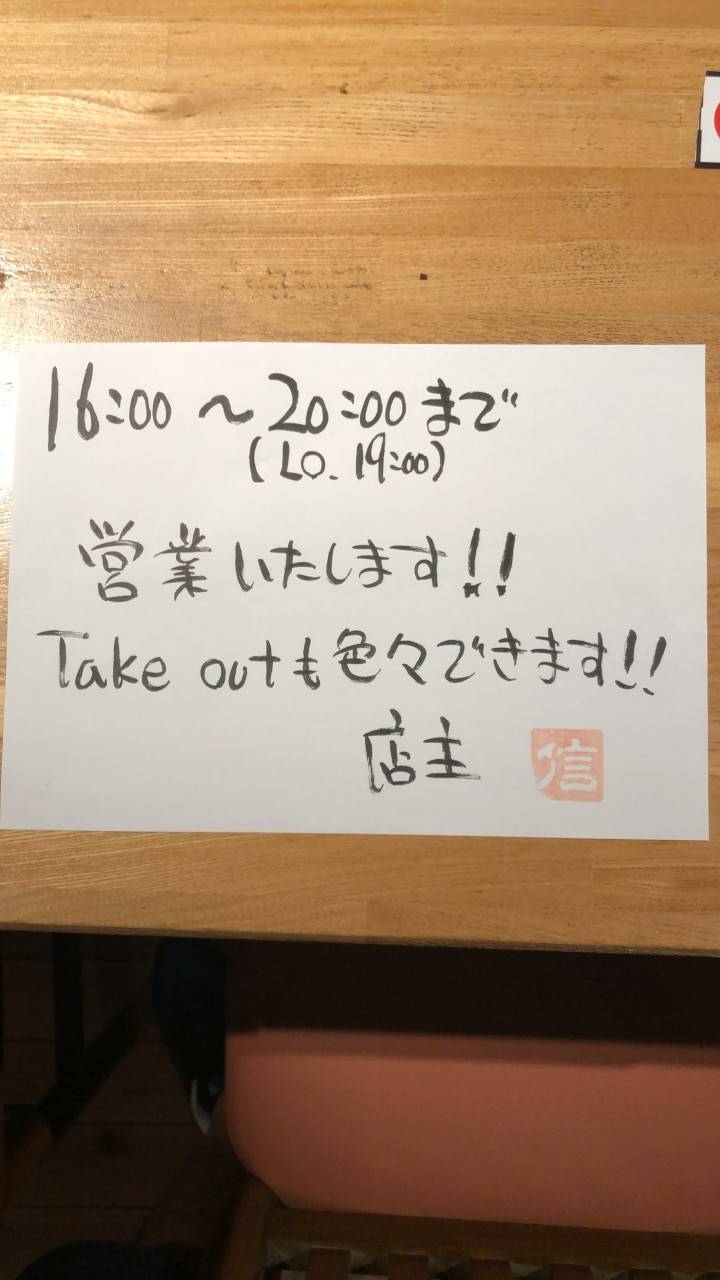 16:00 〜 20:00 まで
(LO. 19:00)
営業いたします!!
Take outも色々できます!!
店主 信